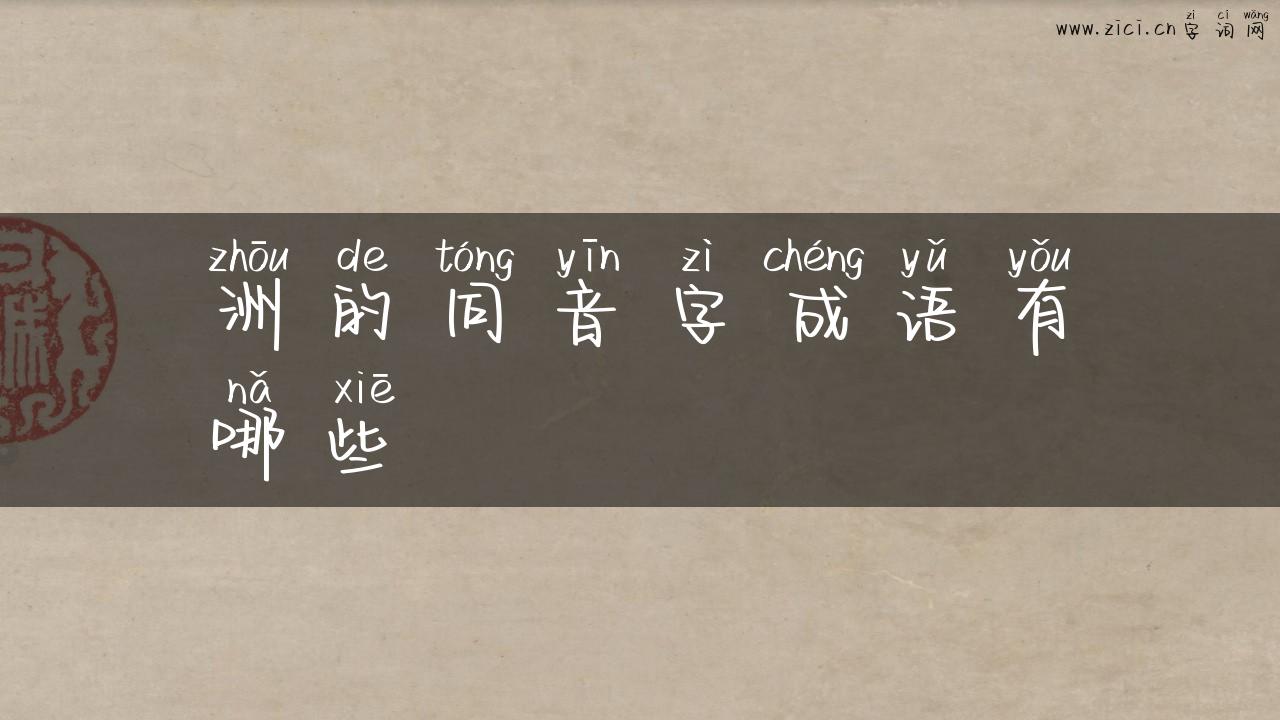 zì cí wǎng
www.zici.cn 字词网
zhōu de tóng yīn zì chéng yǔ yǒu
洲的同音字成语有
nǎ xiē
哪些